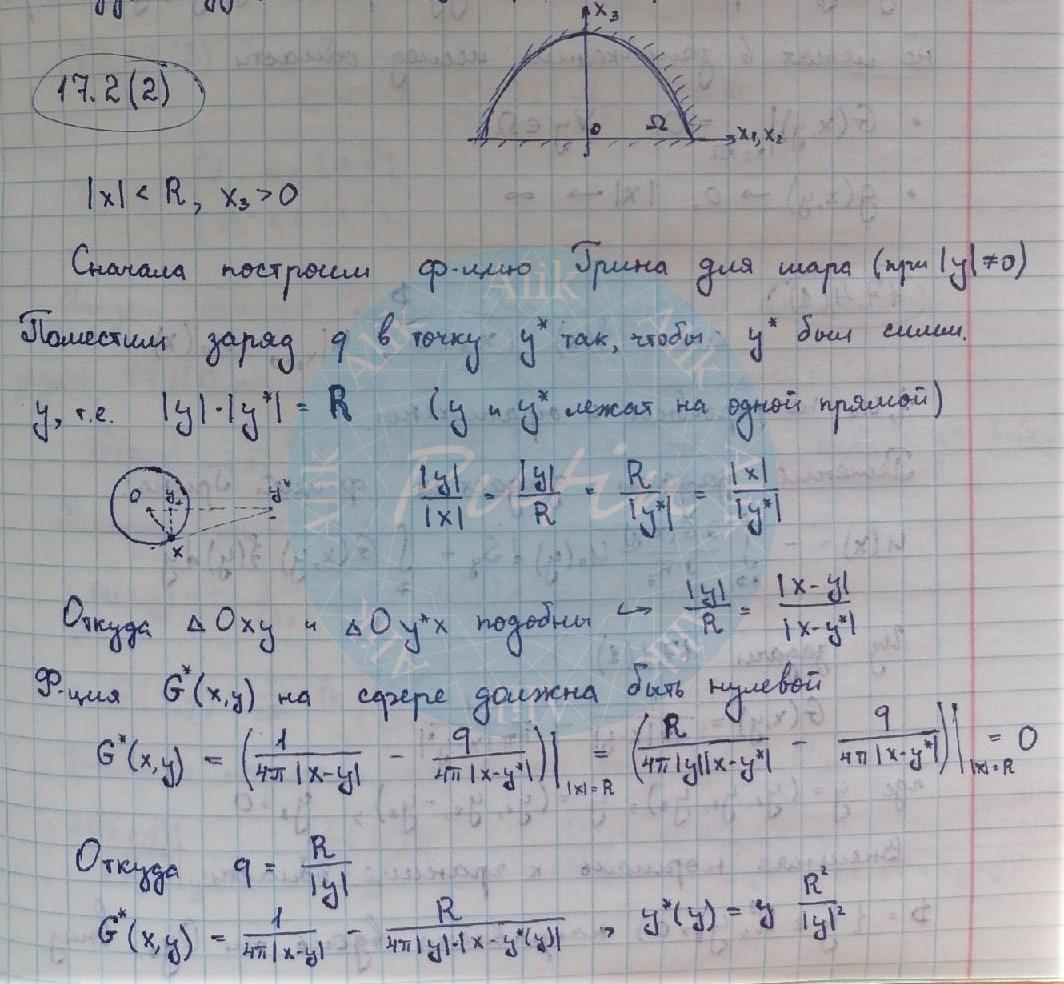 17.2(2)
x₃
0 Ω x₁, x₂
|x| < R, x₃ > 0
Сначала построим ф-цию Грина для шара (при |y| ≠ 0)
Поместим заряд q в точку y* так, чтобы y* был симм.
y, т.е. |y|·|y*| = R (y и y* лежат на одной прямой)
O y y*
x
|y|/|x| = |y|/R = R/|y*| = |x|/|y*|
Откуда Δ Oxy и Δ Oy*x подобны ↪ |y|/R = |x-y|/|x-y*|
Ф-ция G*(x,y) на сфере должна быть нулевой
G*(x,y) = (1/(4π|x-y|) - q/(4π|x-y*|))| |x|=R = (R/(4π|y||x-y*|) - q/(4π|x-y*|))| |x|=R = 0
Откуда q = R/|y|
G*(x,y) = 1/(4π|x-y|) - R/(4π|y|·|x-y*(y)|) , y*(y) = y R²/|y|²
Alik Putin